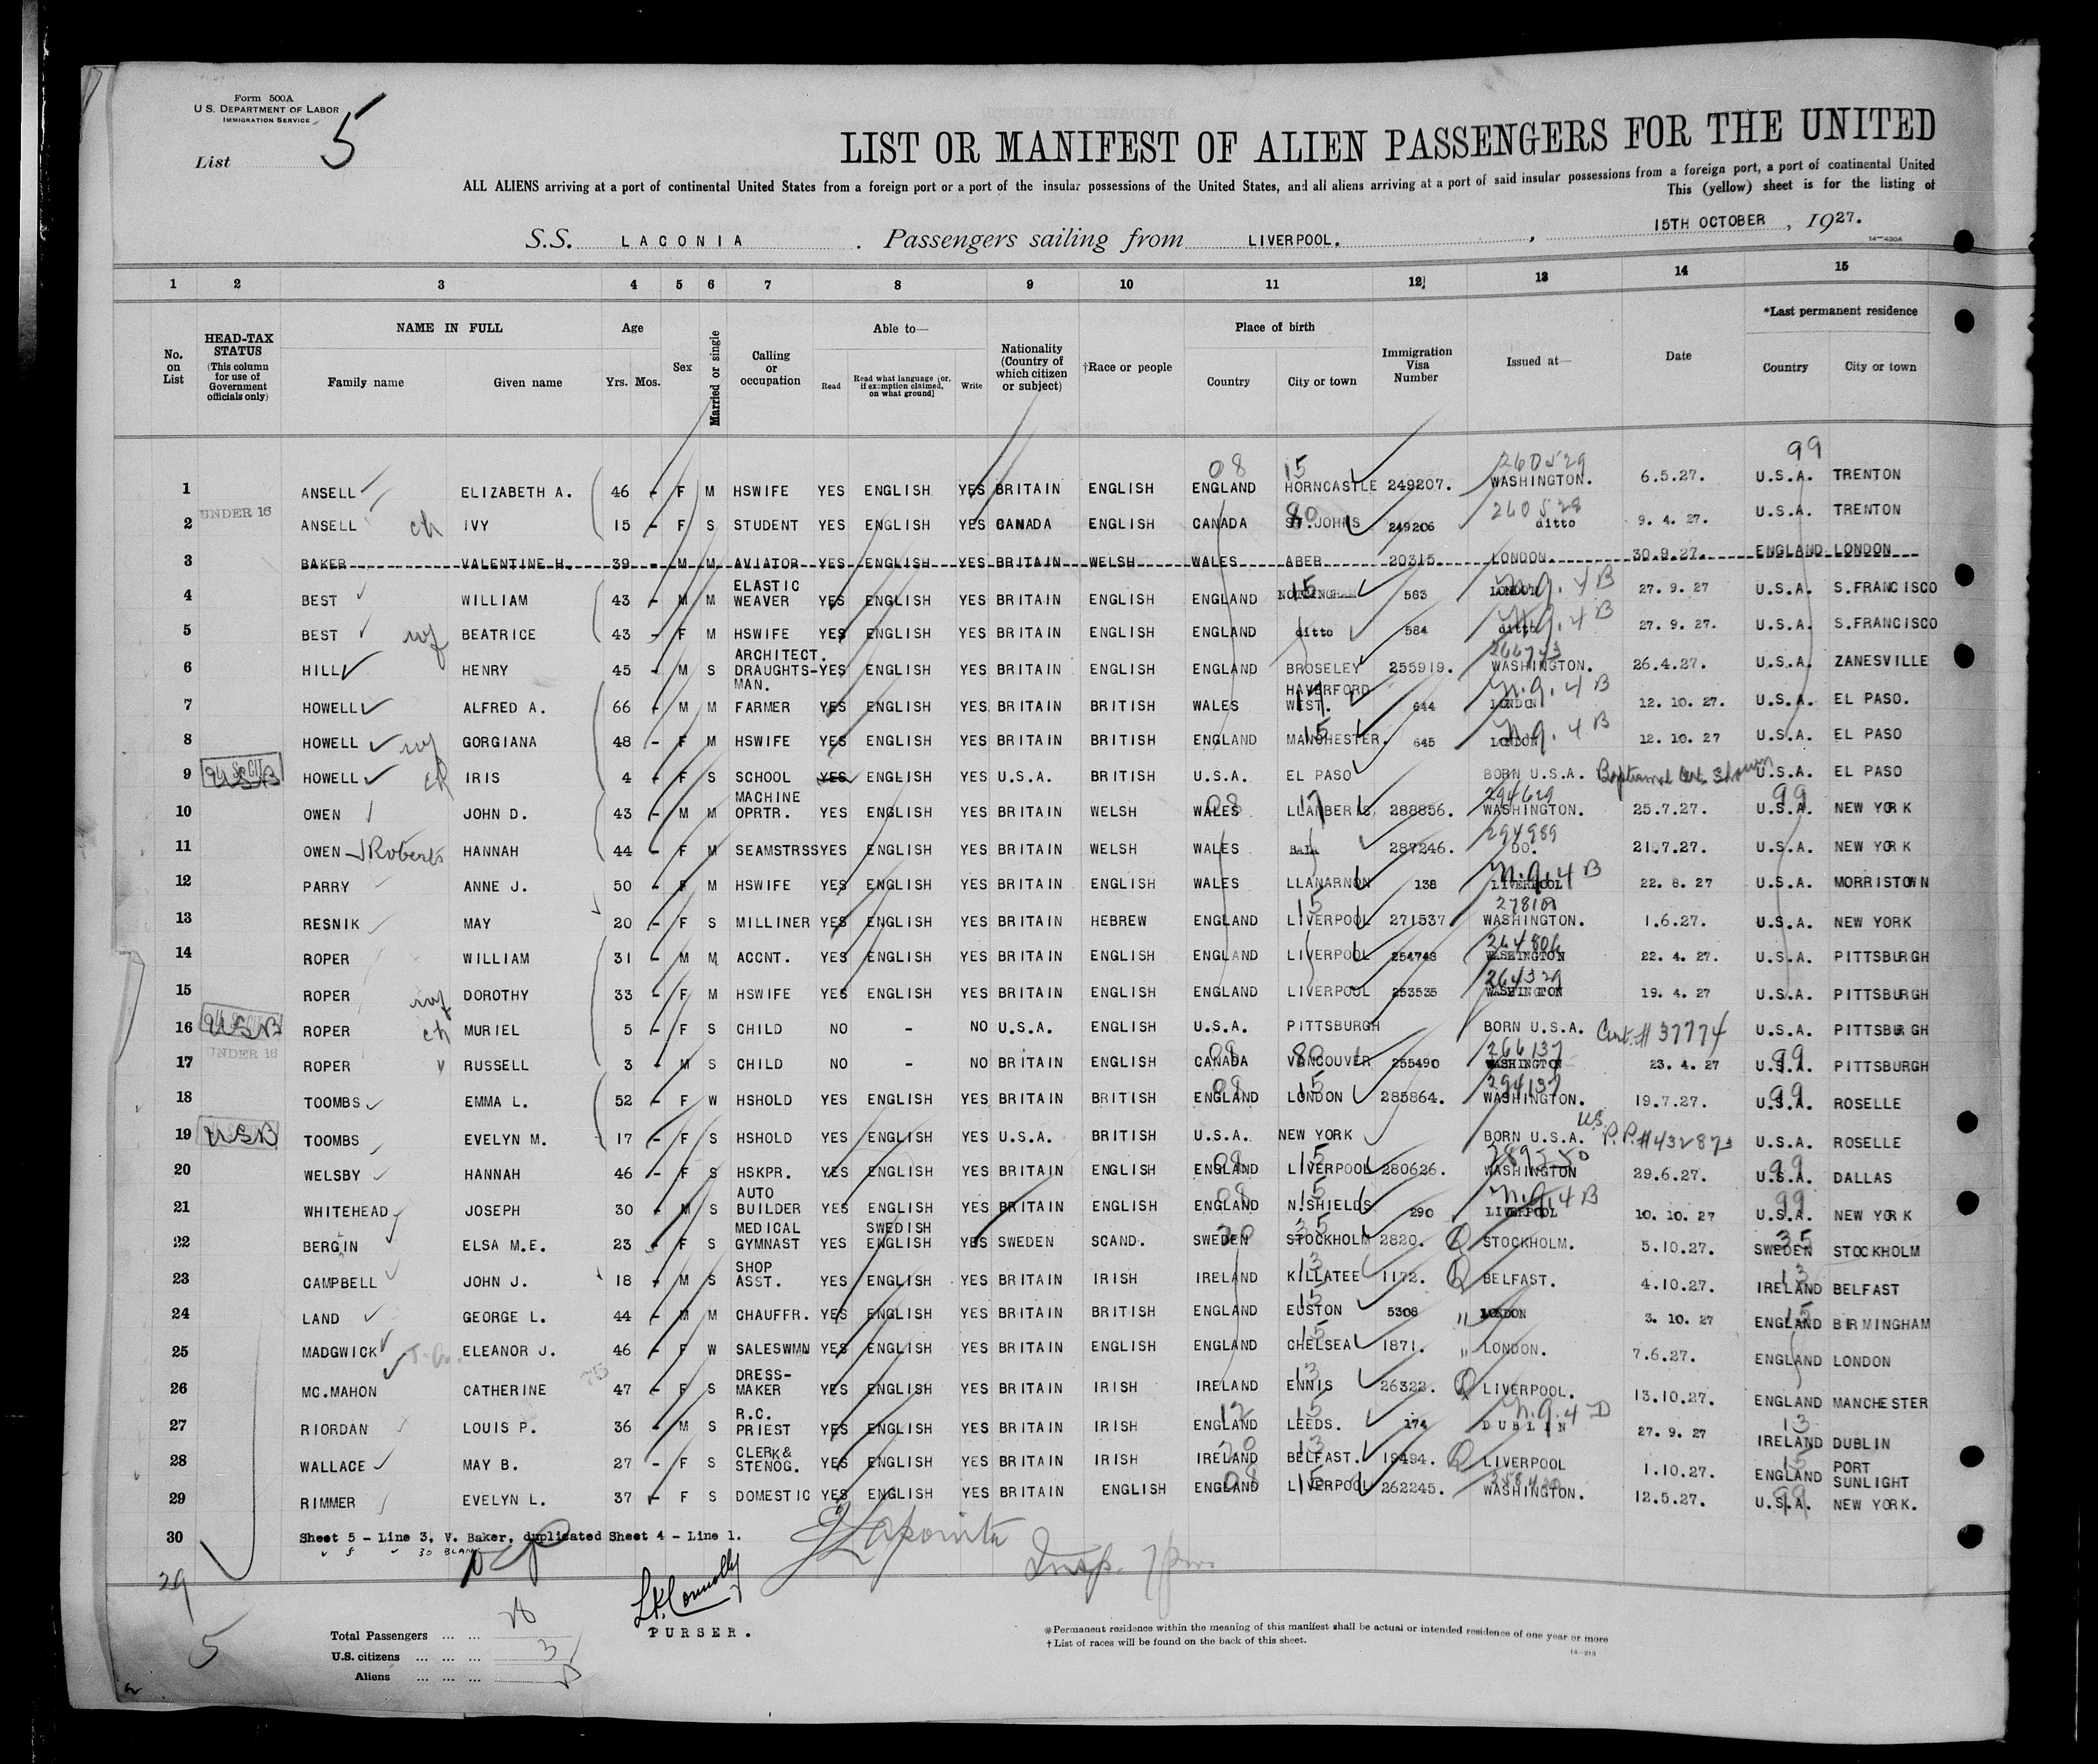 Form 500A
U S. DEPARTMENT OF LABOR
IMMIGRATION SERVICE
List 5
LIST OR MANIFEST OF ALIEN PASSENGERS FOR THE UNITED
ALL ALIENS arriving at a port of continental United States from a foreign port or a port of the insular possessions of the United States, and all aliens arriving at a port of said insular possessions from a foreign port, a port of continental United
This (yellow) sheet is for the listing of
S.S. LACONIA . Passengers sailing from LIVERPOOL. , 15TH OCTOBER , 1927.
14—430A
1 2 3 4 5 6 7 8 9 10 11 12 13 14 15
No. on List HEAD-TAX STATUS (This column for use of Government officials only) NAME IN FULL Family name Given name Age Yrs. Mos. Sex Married or single Calling or occupation Able to— Read Read what language [or, if exemption claimed, on what ground] Write Nationality (Country of which citizen or subject) †Race or people Place of birth Country City or town Immigration Visa Number Issued at— Date *Last permanent residence Country City or town
08 15 260529 99
1 ANSELL ELIZABETH A. 46 - F M HSWIFE YES ENGLISH YES BRITAIN ENGLISH ENGLAND HORNCASTLE 249207. WASHINGTON. 6.5.27. U.S.A. TRENTON
UNDER 16 80 260528
2 ANSELL ch IVY 15 - F S STUDENT YES ENGLISH YES CANADA ENGLISH CANADA ST.JOHNS 249206 ditto 9. 4. 27. U.S.A. TRENTON
3 BAKER VALENTINE H. 39 - M M AVIATOR YES ENGLISH YES BRITAIN WELSH WALES ABER 20315. LONDON. 30.9.27. ENGLAND LONDON
4 BEST WILLIAM 43 - M M ELASTIC WEAVER YES ENGLISH YES BRITAIN ENGLISH ENGLAND NOTTINGHAM 15 583 LONDON n.q. 4 B 27. 9. 27 U.S.A. S.FRANCISCO
5 BEST wf BEATRICE 43 - F M HSWIFE YES ENGLISH YES BRITAIN ENGLISH ENGLAND ditto 584 ditto n.q. 4 B 27. 9. 27. U.S.A. S.FRANCISCO
6 HILL HENRY 45 - M S ARCHITECT. DRAUGHTS-MAN. YES ENGLISH YES BRITAIN ENGLISH ENGLAND BROSELEY 255919. WASHINGTON. 26.4.27. U.S.A. ZANESVILLE
7 HOWELL ALFRED A. 66 - M M FARMER YES ENGLISH YES BRITAIN BRITISH WALES HAVERFORD WEST. 17 644 LONDON n.q. 4 B 12. 10. 27. U.S.A. EL PASO.
8 HOWELL wf GORGIANA 48 - F M HSWIFE YES ENGLISH YES BRITAIN BRITISH ENGLAND MANCHESTER. 15 645 LONDON n.q. 4 B 12. 10. 27 U.S.A. EL PASO
9 USB HOWELL ch IRIS 4 - F S SCHOOL YES ENGLISH YES U.S.A. BRITISH U.S.A. EL PASO BORN U.S.A. Baptismal Cert. Shown U.S.A. EL PASO
10 OWEN JOHN D. 43 - M M MACHINE OPRTR. YES ENGLISH YES BRITAIN WELSH WALES 08 LLANBERIS 17 288856. 294629 WASHINGTON. 25.7.27. 99 U.S.A. NEW YORK
11 OWEN Roberts HANNAH 44 - F M SEAMSTRSS YES ENGLISH YES BRITAIN WELSH WALES BALA 287246. 294989 DO. 21.7.27. U.S.A. NEW YORK
12 PARRY ANNE J. 50 - F M HSWIFE YES ENGLISH YES BRITAIN ENGLISH WALES LLANARNON 138 LIVERPOOL n.q. 4 B 22. 8. 27 U.S.A. MORRISTOWN
13 RESNIK MAY 20 - F S MILLINER YES ENGLISH YES BRITAIN HEBREW ENGLAND LIVERPOOL 15 271537 WASHINGTON. 1.6.27. U.S.A. NEW YORK
14 ROPER WILLIAM 31 - M M ACCNT. YES ENGLISH YES BRITAIN ENGLISH ENGLAND LIVERPOOL 254748 264806 WASHINGTON 22. 4. 27. U.S.A. PITTSBURGH
15 ROPER wf DOROTHY 33 - F M HSWIFE YES ENGLISH YES BRITAIN ENGLISH ENGLAND LIVERPOOL 253535 264329 WASHINGTON 19. 4. 27 U.S.A. PITTSBURGH
16 USB ROPER ch MURIEL 5 - F S CHILD NO - NO U.S.A. ENGLISH U.S.A. PITTSBURGH BORN U.S.A. Cert. # 37774 U.S.A. PITTSBURGH
UNDER 16
17 ROPER RUSSELL 3 - M S CHILD NO - NO BRITAIN ENGLISH CANADA 08 VANCOUVER 80 255490 266137 WASHINGTON 23. 4. 27 99 U.S.A. PITTSBURGH
18 TOOMBS EMMA L. 52 - F W HSHOLD YES ENGLISH YES BRITAIN BRITISH ENGLAND 08 LONDON 15 285864. 294137 WASHINGTON. 19.7.27. 99 U.S.A. ROSELLE
19 USB TOOMBS EVELYN M. 17 - F S HSHOLD YES ENGLISH YES U.S.A. BRITISH U.S.A. NEW YORK BORN U.S.A. U.S. P.P. #432873 U.S.A. ROSELLE
20 WELSBY HANNAH 46 - F S HSKPR. YES ENGLISH YES BRITAIN ENGLISH ENGLAND 08 LIVERPOOL 15 280626. WASHINGTON 29.6.27. 99 U.S.A. DALLAS
21 WHITEHEAD JOSEPH 30 - M S AUTO BUILDER YES ENGLISH YES BRITAIN ENGLISH ENGLAND 08 N.SHIELDS 15 290 LIVERPOOL n.q. 4 B 10. 10. 27 99 U.S.A. NEW YORK
22 BERGIN ELSA M.E. 23 - F S MEDICAL GYMNAST YES SWEDISH ENGLISH YES SWEDEN SCAND. SWEDEN STOCKHOLM 35 2820. Q STOCKHOLM. 5.10.27. SWEDEN 35 STOCKHOLM
23 CAMPBELL JOHN J. 18 - M S SHOP ASST. YES ENGLISH YES BRITAIN IRISH IRELAND KILLATEE 13 1172. Q BELFAST. 4.10.27. IRELAND 13 BELFAST
24 LAND GEORGE L. 44 - M M CHAUFFR. YES ENGLISH YES BRITAIN BRITISH ENGLAND EUSTON 15 5308 " LONDON 3. 10. 27 ENGLAND 15 BIRMINGHAM
25 MADGWICK ELEANOR J. 46 - F W SALESWMN YES ENGLISH YES BRITAIN ENGLISH ENGLAND CHELSEA 15 1871. " LONDON. 7.6.27. ENGLAND LONDON
26 MC.MAHON CATHERINE 47 - F S DRESS-MAKER YES ENGLISH YES BRITAIN IRISH IRELAND ENNIS 13 26322. Q LIVERPOOL. 13.10.27. ENGLAND MANCHESTER
27 RIORDAN LOUIS P. 36 - M S R.C. PRIEST YES ENGLISH YES BRITAIN IRISH ENGLAND 12 LEEDS. 15 174 DUBLIN n.q. 4 D 27. 9. 27 13 IRELAND DUBLIN
28 WALLACE MAY B. 27 - F S CLERK & STENOG. YES ENGLISH YES BRITAIN IRISH IRELAND BELFAST. 13 19494. Q LIVERPOOL 1.10.27. 15 ENGLAND PORT SUNLIGHT
29 RIMMER EVELYN L. 37 - F S DOMESTIC YES ENGLISH YES BRITAIN ENGLISH ENGLAND 08 LIVERPOOL 15 262245. WASHINGTON. 12.5.27. 99 U.S.A. NEW YORK.
30 Sheet 5 - Line 3, V. Baker, duplicated Sheet 4 - Line 1.
" 5 " 30 BLANK
29
5
L.K. Connolly
PURSER.
Total Passengers ... ...
U.S. citizens ... ... ... 3
Aliens ... ... ...
*Permanent residence within the meaning of this manifest shall be actual or intended residence of one year or more
†List of races will be found on the back of this sheet.
14—213